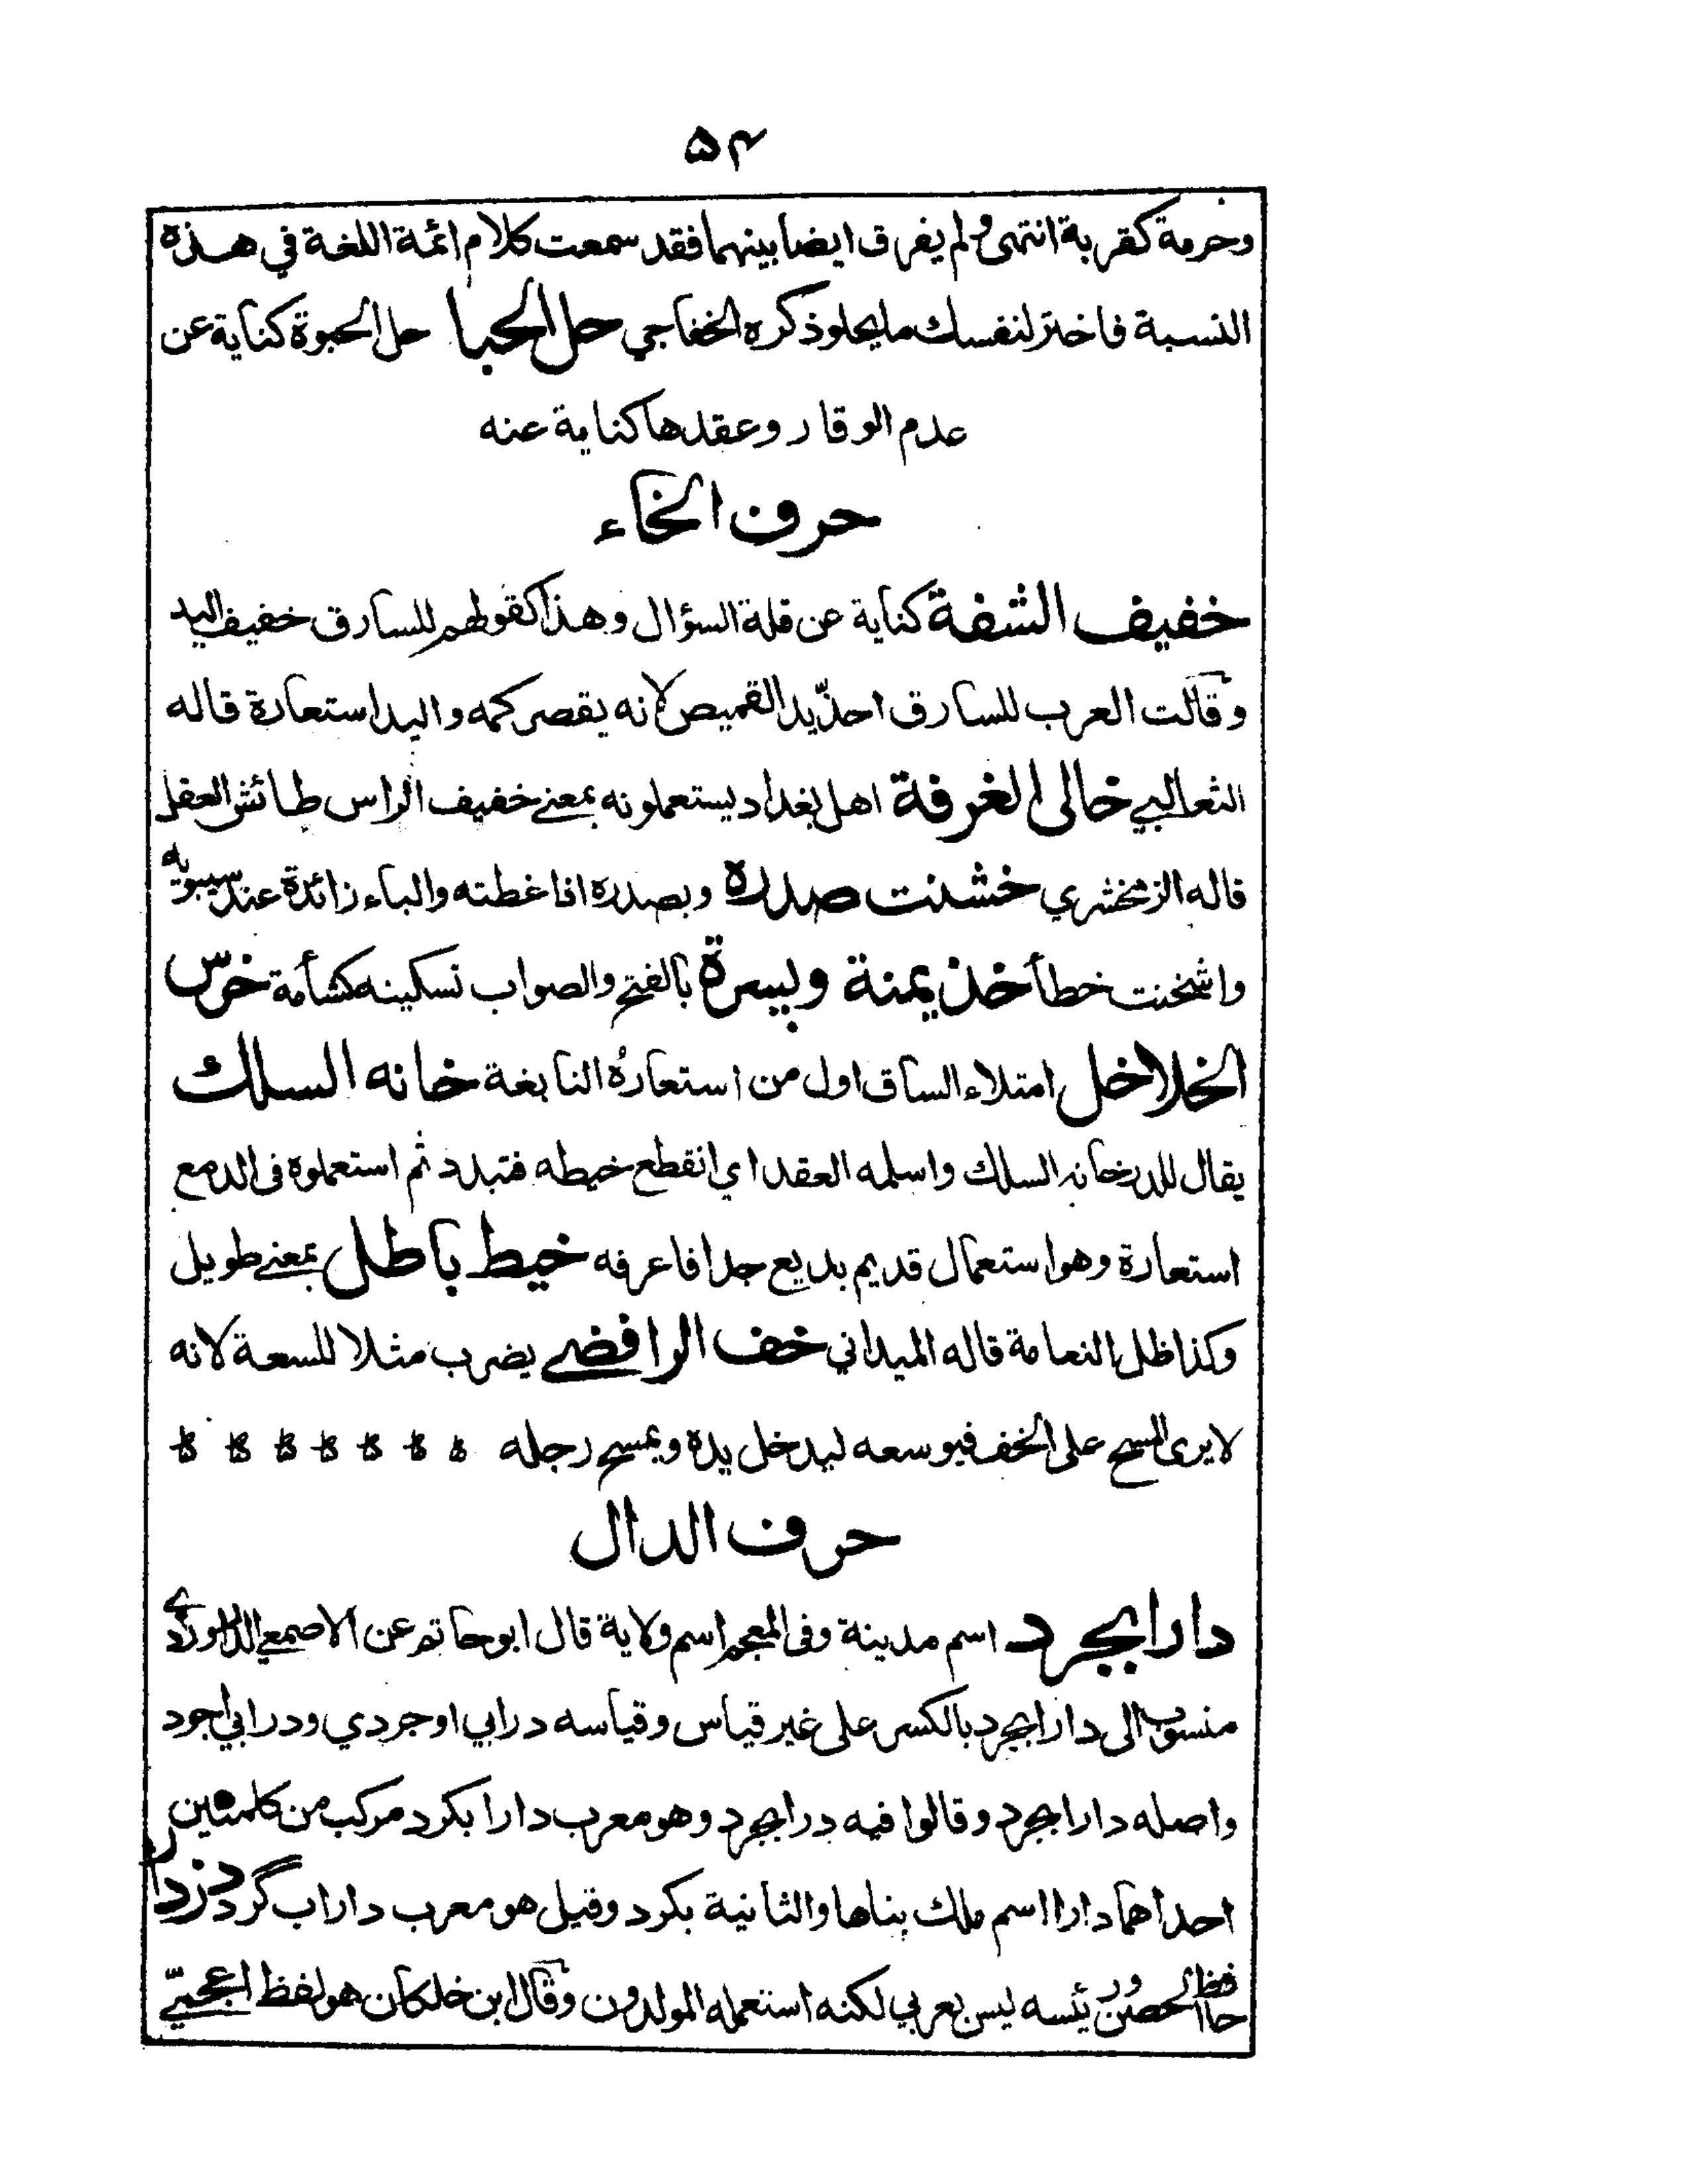 ۵۴
وخرمة كقربة انتهى ولم يفرق ايضا بينهما فقد سمعت كلام ائمة اللغة في هذه
النسبة فاختر لنفسك ما يحلو ذكره الخفاجي حل الحبا حل الحبوة كناية عن
عدم الوقار وعقدها كناية عنه
حرف الخاء
خفيف الشفة كناية عن قلة السؤال وهذا كقولهم للسارق خفيف اليد
وقالت العرب للسارق احذّ يد القميص لانه يقصر كمه واليد استعارة قاله
الثعالبي خالى الغرفة اهل بغداد يستعملونه بمعنے خفيف الراس طائش العقل
قاله الزمخشري خشنت صدره وبصدره اذا غظته والباء زائدة عند سيبويه
واشخنت خطأ خذ يمنة ويسرة بالفتح والصواب تسكينه كشأمة خرس
الخلاخل امتلاء الساق اول من استعاره النابغة خانه السلك
يقال للدر خانه السلك واسلمه العقد اي انقطع خيطه فتبدد ثم استعملوه فى الدمع
استعارة وهو استعمال قديم بديع جدا فاعرفه خيط باطل بمعنے طويل
وكذا ظل النعامة قاله الميداني خف الرافضے يضرب مثلا للسعة لانه
لا يرى المسح على الخف فيوسعه ليدخل يده ويمسح رجله
حرف الدال
دارابجرد اسم مدينة وفى المعجم اسم ولاية قال ابو حاتم عن الاصمعي الدراوردے
منسوب الى دارابجرد بالكسر على غير قياس وقياسه درابي اوجردي ودرابي اجود
واصله دارابجرد وقالوا فيه درابجرد وهو معرب دارا بكرد مركب من كلمتين
احداهما دارا اسم ملك بناها والثانية بكرد وقيل هو معرب داراب گرد دزدار
حافظ الحصن ورئيسه ليس بعربي لكنه استعمله المولدون وقال ابن خلكان هو لفظ اعجميّے